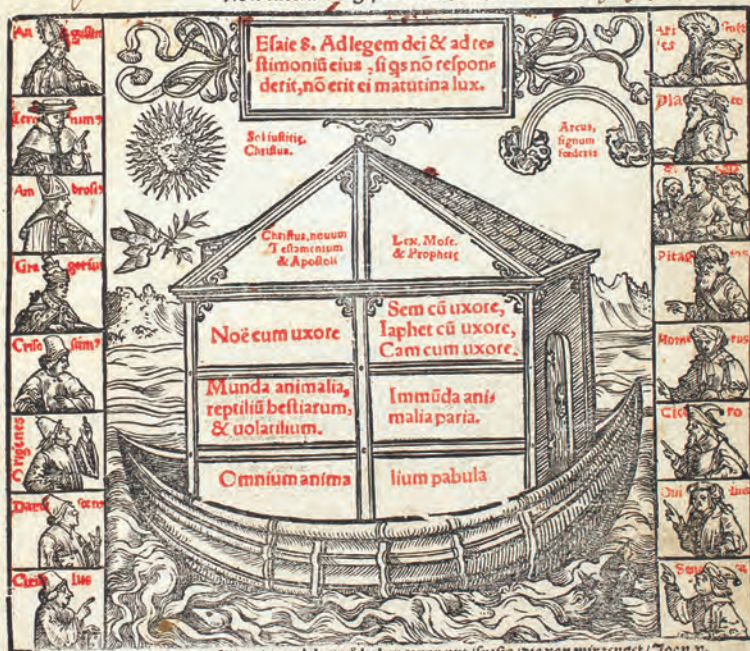 Esaie 8. Ad legem dei & ad re-
stimoniũ eius, si qs nõ respon-
derit, nõ erit ei matutina lux.
Sol iustitię,
Christus.
Arcus,
signum
fœderis
Christus, nouum
Testamentum
& Apostoli
Lex, Mose.
& Prophetę
Noë cum uxore
Sem cũ uxore,
Iaphet cũ uxore,
Cam cum uxore.
Munda animalia,
reptiliũ bestiarum,
& uolatilium.
Immũda ani-
malia paria.
Omnium anima
lium pabula
Iero nim9
Am brosi9
Gre gorius
Criso stim9
Origenes
Pla to
Pitag
Home rus
Cice ro